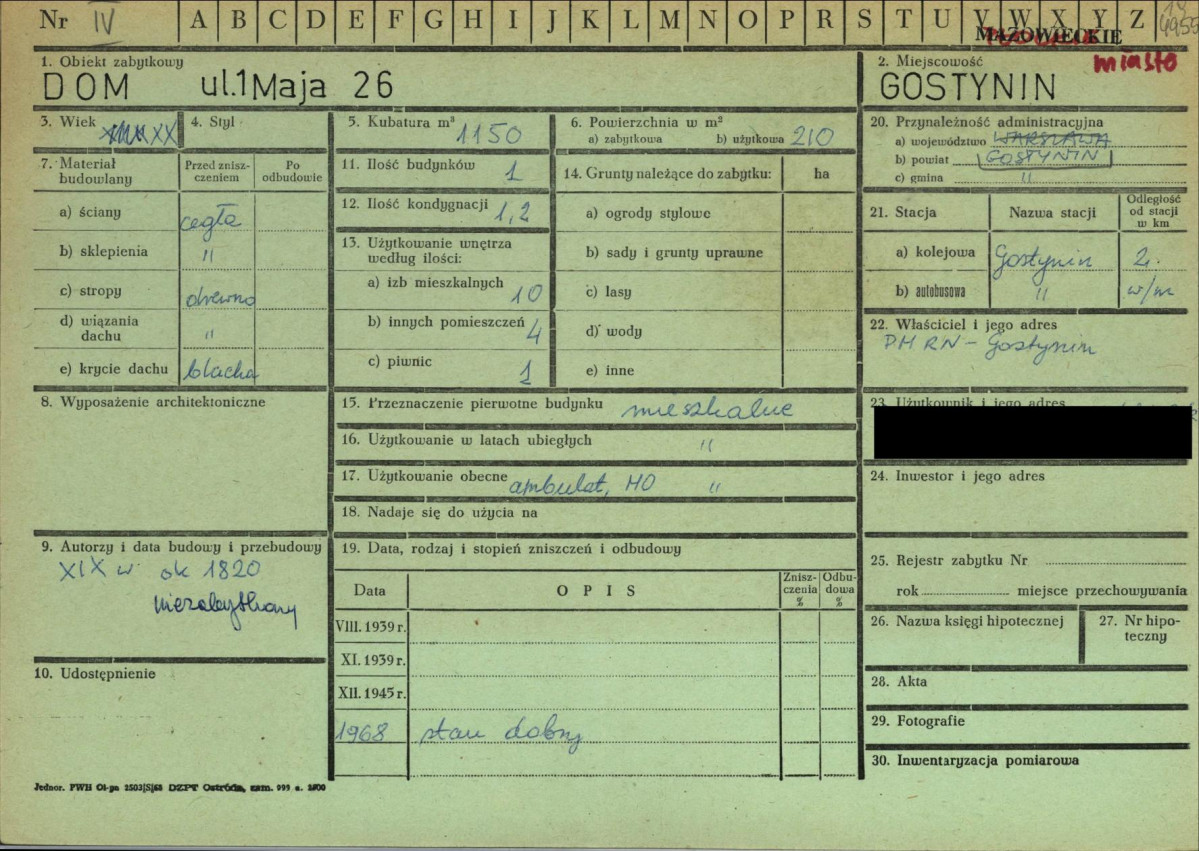 Nr IV A B C D E F G H I J K L M N O P R S T U V W X Y Z
4955
MAZOWIECKIE
miasto
1. Obiekt zabytkowy
DOM ul. 1 Maja 26
2. Miejscowość
GOSTYNIN
3. Wiek XX
4. Styl
5. Kubatura m³ 1150
6. Powierzchnia w m²
a) zabytkowa b) użytkowa 210
7. Materiał budowlany
Przed zniszczeniem
Po odbudowie
a) ściany cegła
b) sklepienia "
c) stropy drewno
d) wiązania dachu "
e) krycie dachu blacha
8. Wyposażenie architektoniczne
9. Autorzy i data budowy i przebudowy
XIX w ok 1820
niezabytkowy
10. Udostępnienie
11. Ilość budynków 1
12. Ilość kondygnacji 1,2
13. Użytkowanie wnętrza
według ilości:
a) izb mieszkalnych 10
b) innych pomieszczeń 4
c) piwnic 1
14. Grunty należące do zabytku: ha
a) ogrody stylowe
b) sady i grunty uprawne
c) lasy
d) wody
e) inne
15. Przeznaczenie pierwotne budynku mieszkalne
16. Użytkowanie w latach ubiegłych "
17. Użytkowanie obecne ambulat, MO "
18. Nadaje się do użycia na
19. Data, rodzaj i stopień zniszczeń i odbudowy
Data OPIS Zniszczenia % Odbudowa %
VIII. 1939 r.
XI. 1939 r.
XII. 1945 r.
1968 stan dobry
20. Przynależność administracyjna
a) województwo WARSZAWA
b) powiat GOSTYNIN
c) gmina "
21. Stacja Nazwa stacji Odległość od stacji w km
a) kolejowa Gostynin 2.
b) autobusowa " w/m
22. Właściciel i jego adres
PMRN - Gostynin
23. Użytkownik i jego adres
24. Inwestor i jego adres
25. Rejestr zabytku Nr
rok miejsce przechowywania
26. Nazwa księgi hipotecznej
27. Nr hipoteczny
28. Akta
29. Fotografie
30. Inwentaryzacja pomiarowa
Jednor. PWH Ol-pa 2503[S]68 DZPT Ostróda, zam. 999 n. 1500